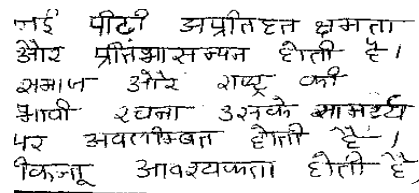 नई पीढी अप्रतिहत क्षमता
और प्रतिभासम्पन्न होती है।
समाज और राष्ट्र की
भावी रचना उसके सामर्थ्य
पर अवलम्बित होती है।
किन्तू आवश्यकता होती है